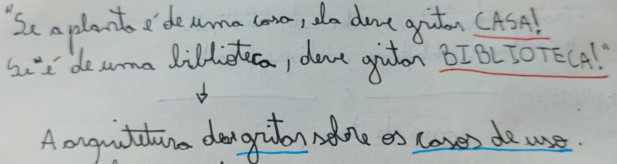 "Se a planta é de uma casa, ela deve gritar CASA!
Se é de uma biblioteca, deve gritar BIBLIOTECA!"
A arquitetura deve gritar sobre os casos de uso.